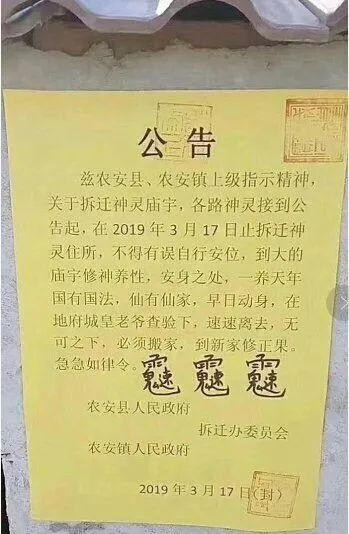 公告
兹农安县、农安镇上级指示精神，
关于拆迁神灵庙宇，各路神灵接到公
告起，在 2019 年 3 月 17 日止拆迁神
灵住所，不得有误自行安位，到大的
庙宇修神养性，安身之处，一养天年
国有国法，仙有仙家，早日动身，在
地府城皇老爷查验下，速速离去，无
可之下，必须搬家，到新家修正果。
急急如律令。
农安县人民政府
拆迁办委员会
农安镇人民政府
2019 年 3 月 17 日(封)